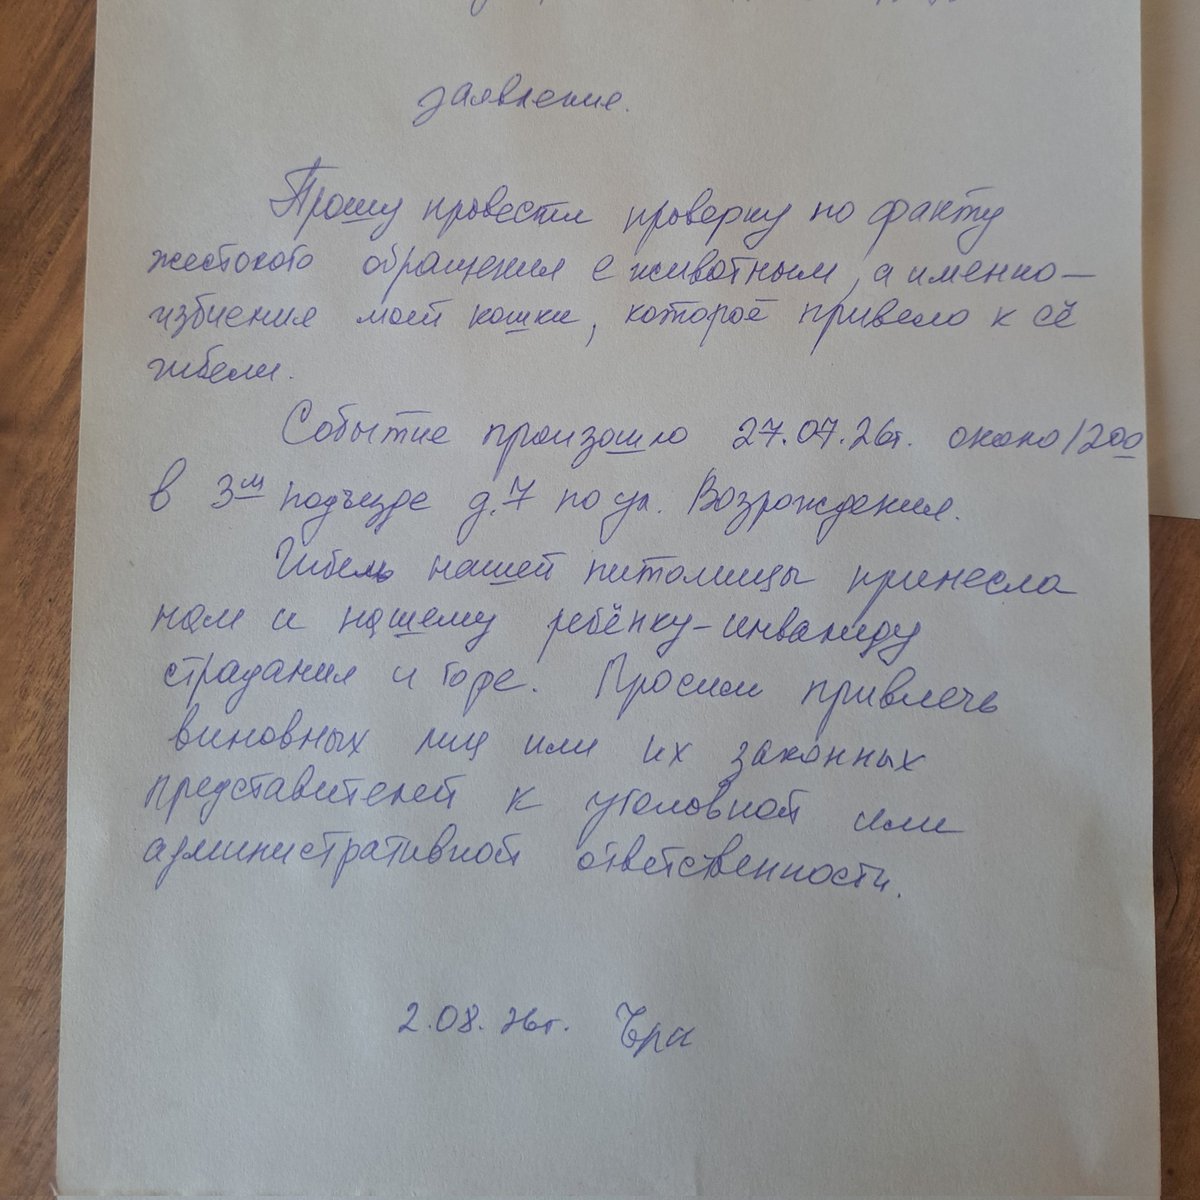 заявление.
Прошу провести проверку по факту
жестокого обращения с животным, а именно —
избиения моей кошки, которое привело к её
гибели.
Событие произошло 27.07.26г. около 12 00
в 3м подъезде д.7 по ул. Возрождения.
Гибель нашей питомицы принесла
нам и нашему ребёнку-инвалиду
страдания и горе. Просим привлечь
виновных лиц или их законных
представителей к уголовной или
административной ответственности.
2.08.26г.